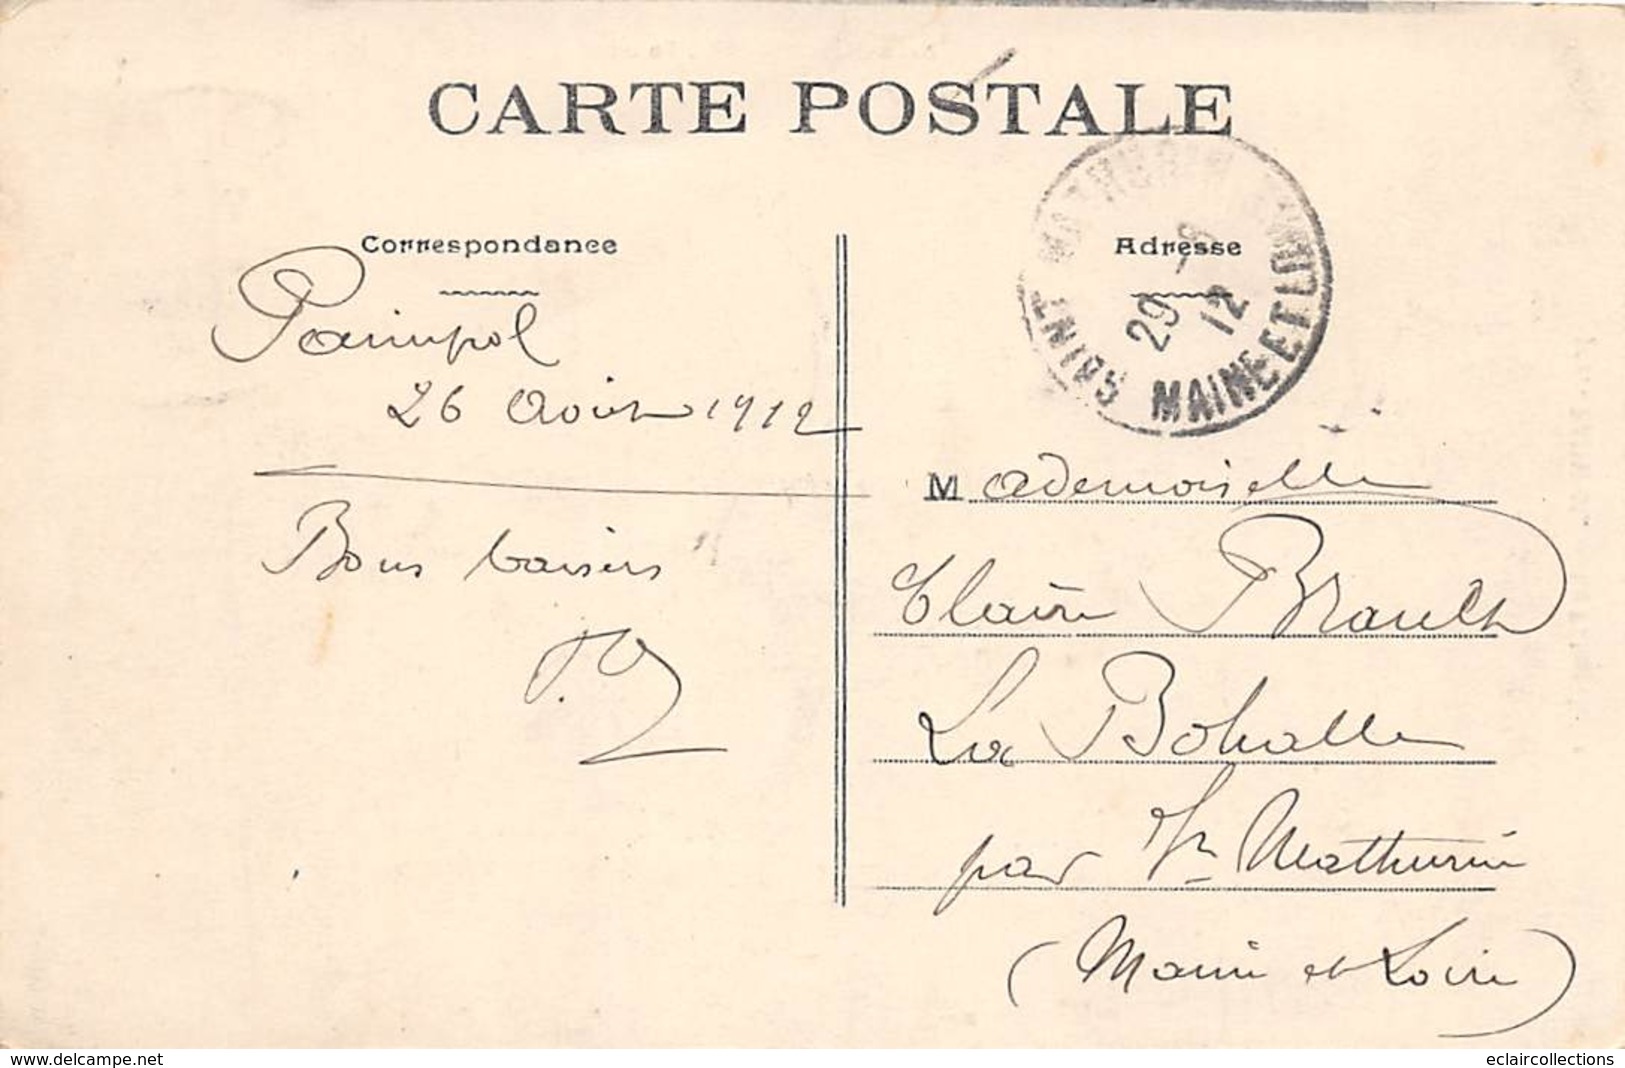 CARTE POSTALE
Correspondance
Paimpol
26 Août 1912
Bons baisers
Adresse
SAINT MATHURIN MAINE ET LOIRE
29 -8
12
Mademoiselle
Claire Brault
La Bohalle
par St Mathurin
(Maine et Loire)
www.delcampe.net
eclaircollections